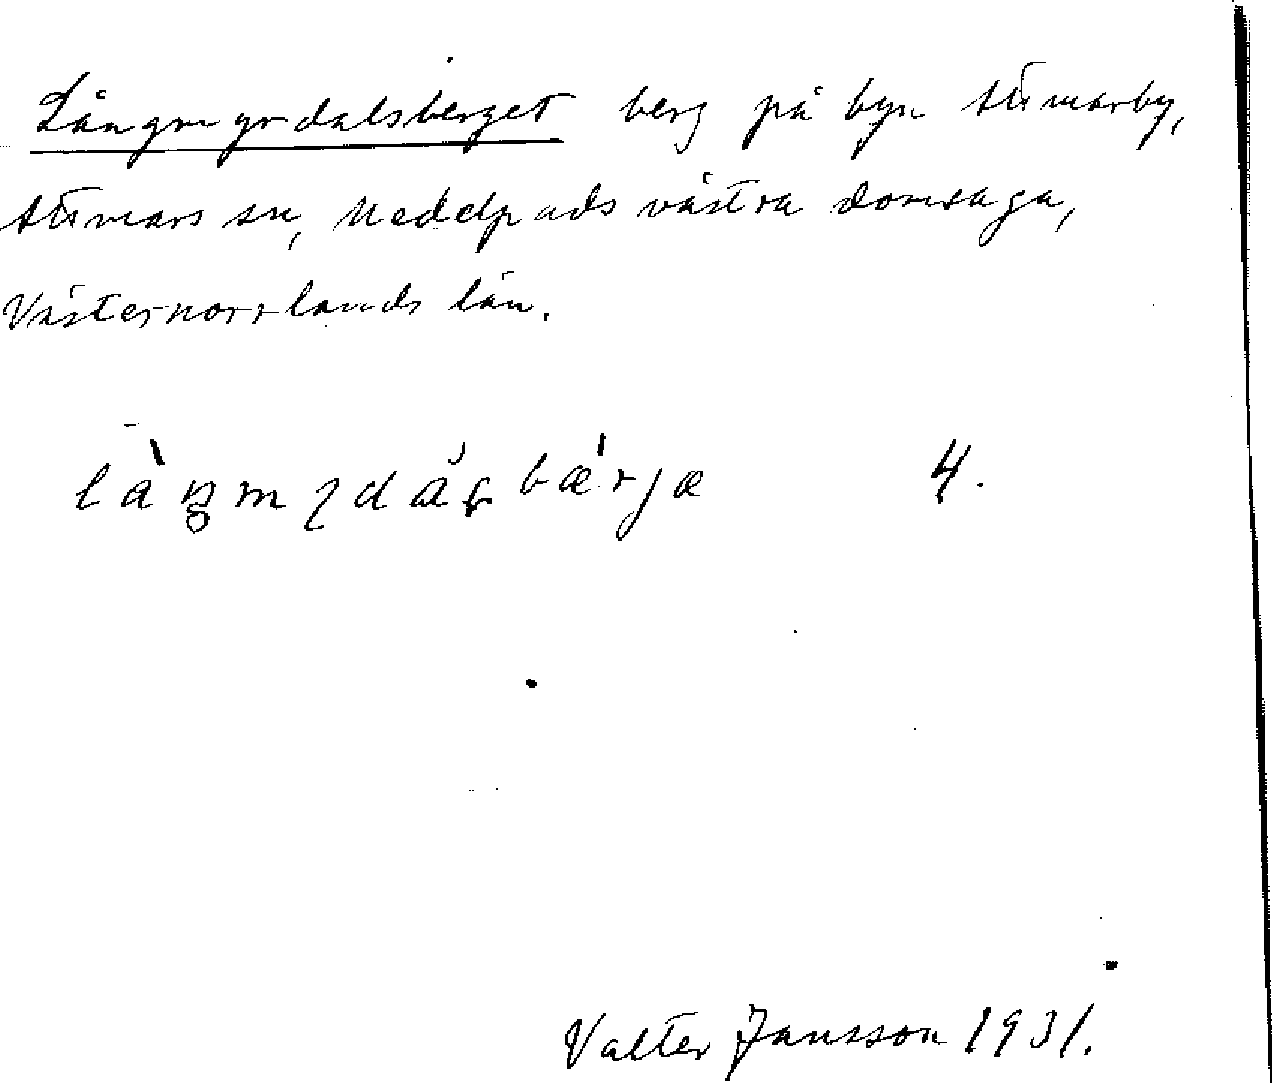 Långmyrdalsberget berg på byn Attmarby,
Attmars sn, Medelpads västra domsaga,
Västernorrlands län.
4.
Valter Jansson 1931.